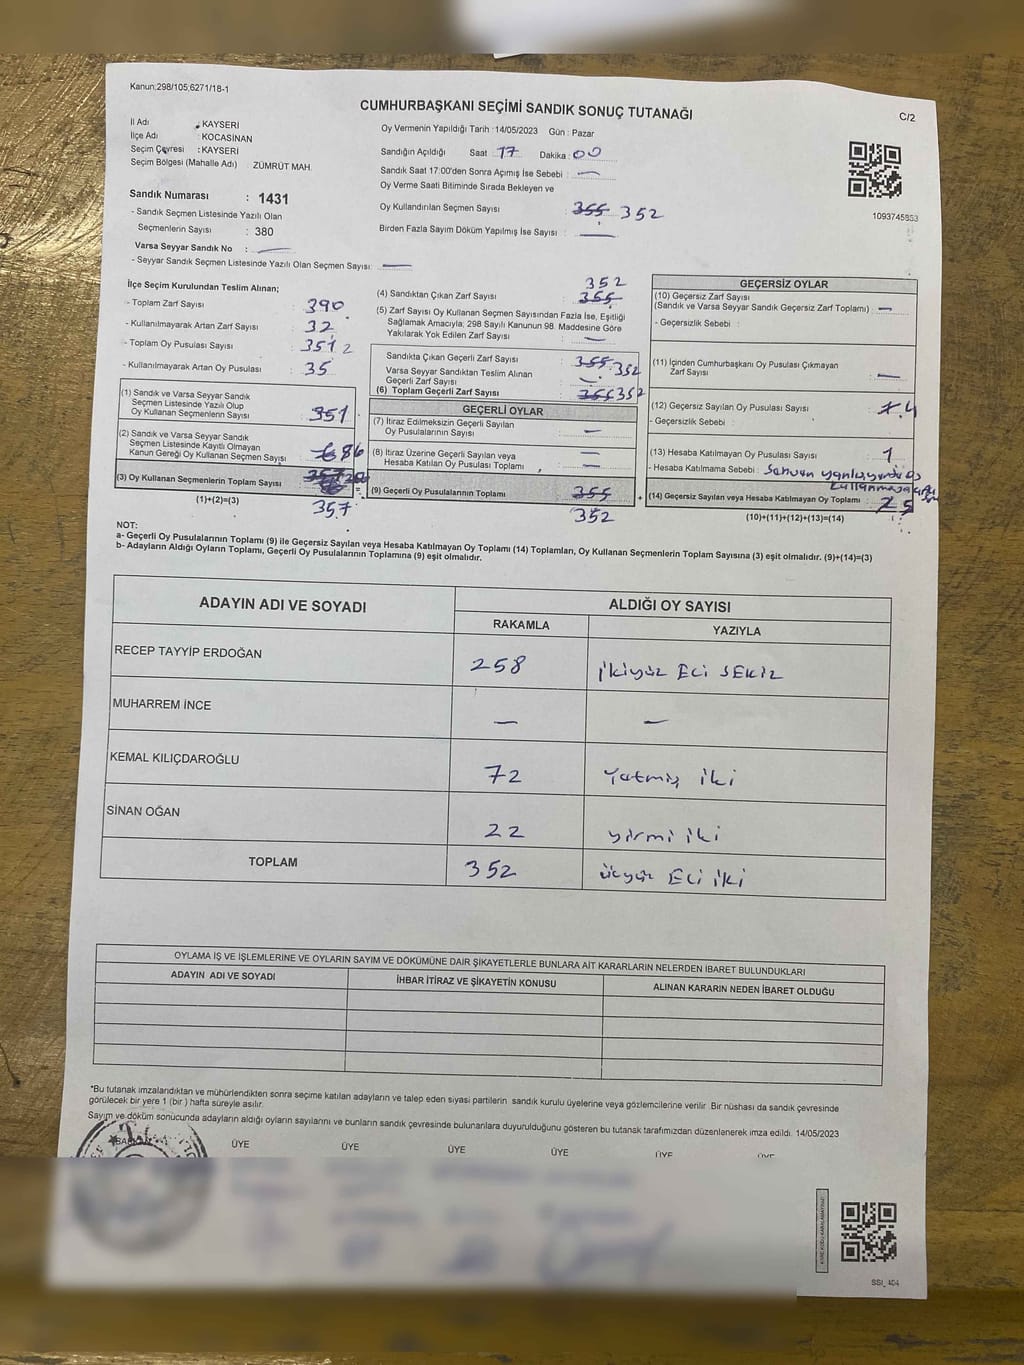 Kanun;298/105;6271/18-1
CUMHURBAŞKANI SEÇİMİ SANDIK SONUÇ TUTANAĞI
C/2
İl Adı : KAYSERİ
İlçe Adı : KOCASİNAN
Seçim Çevresi : KAYSERİ
Seçim Bölgesi (Mahalle Adı) : ZÜMRÜT MAH.
Sandık Numarası : 1431
- Sandık Seçmen Listesinde Yazılı Olan
Seçmenlerin Sayısı : 380
Varsa Seyyar Sandık No : —
- Seyyar Sandık Seçmen Listesinde Yazılı Olan Seçmen Sayısı: —
Oy Vermenin Yapıldığı Tarih :14/05/2023 Gün : Pazar
Sandığın Açıldığı Saat : 17 Dakika : 00
Sandık Saat 17:00'den Sonra Açımış İse Sebebi : —
Oy Verme Saati Bitiminde Sırada Bekleyen ve
Oy Kullandırılan Seçmen Sayısı : 355 352
Birden Fazla Sayım Döküm Yapılmış İse Sayısı : —
1093745853
İlçe Seçim Kurulundan Teslim Alınan;
- Toplam Zarf Sayısı : 390
- Kullanılmayarak Artan Zarf Sayısı : 32
- Toplam Oy Pusulası Sayısı :
- Kullanılmayarak Artan Oy Pusulası : 35
(1) Sandık ve Varsa Seyyar Sandık
Seçmen Listesinde Yazılı Olup
Oy Kullanan Seçmenlerin Sayısı : 351
(2) Sandık ve Varsa Seyyar Sandık
Seçmen Listesinde Kayıtlı Olmayan
Kanun Gereği Oy Kullanan Seçmen Sayısı :
(3) Oy Kullanan Seçmenlerin Toplam Sayısı
(1)+(2)=(3)
357
352
(4) Sandıktan Çıkan Zarf Sayısı : 355
(5) Zarf Sayısı Oy Kullanan Seçmen Sayısından Fazla İse, Eşitliği
Sağlamak Amacıyla; 298 Sayılı Kanunun 98. Maddesine Göre
Yakılarak Yok Edilen Zarf Sayısı : —
Sandıkta Çıkan Geçerli Zarf Sayısı : 355 352
Varsa Seyyar Sandıktan Teslim Alınan
Geçerli Zarf Sayısı : —
(6) Toplam Geçerli Zarf Sayısı : 355 352
GEÇERLİ OYLAR
(7) İtiraz Edilmeksizin Geçerli Sayılan
Oy Pusulalarının Sayısı : —
(8) İtiraz Üzerine Geçerli Sayılan veya
Hesaba Katılan Oy Pusulası Toplamı : —
(9) Geçerli Oy Pusulalarının Toplamı : 355
352
GEÇERSİZ OYLAR
(10) Geçersiz Zarf Sayısı
(Sandık ve Varsa Seyyar Sandık Geçersiz Zarf Toplamı) : —
- Geçersizlik Sebebi :
(11) İçinden Cumhurbaşkanı Oy Pusulası Çıkmayan
Zarf Sayısı : —
(12) Geçersiz Sayılan Oy Pusulası Sayısı : 4
- Geçersizlik Sebebi :
(13) Hesaba Katılmayan Oy Pusulası Sayısı : 1
- Hesaba Katılmama Sebebi :
(14) Geçersiz Sayılan veya Hesaba Katılmayan Oy Toplamı : 5
(10)+(11)+(12)+(13)=(14)
NOT:
a- Geçerli Oy Pusulalarının Toplamı (9) ile Geçersiz Sayılan veya Hesaba Katılmayan Oy Toplamı (14) Toplamları, Oy Kullanan Seçmenlerin Toplam Sayısına (3) eşit olmalıdır. (9)+(14)=(3)
b- Adayların Aldığı Oyların Toplamı, Geçerli Oy Pusulalarının Toplamına (9) eşit olmalıdır.
ADAYIN ADI VE SOYADI
ALDIĞI OY SAYISI
RAKAMLA YAZIYLA
RECEP TAYYİP ERDOĞAN 258 ikiyüz Eci SEKİZ
MUHARREM İNCE — —
KEMAL KILIÇDAROĞLU 72 Yatmiş iki
SİNAN OĞAN 22 yirmi iki
TOPLAM 352 üçyüz Eci iki
OYLAMA İŞ VE İŞLEMLERİNE VE OYLARIN SAYIM VE DÖKÜMÜNE DAİR ŞİKAYETLERLE BUNLARA AİT KARARLARIN NELERDEN İBARET BULUNDUKLARI
ADAYIN ADI VE SOYADI İHBAR İTİRAZ VE ŞİKAYETİN KONUSU ALINAN KARARIN NEDEN İBARET OLDUĞU
*Bu tutanak imzalandıktan ve mühürlendikten sonra seçime katılan adayların ve talep eden siyasi partilerin sandık kurulu üyelerine veya gözlemcilerine verilir. Bir nüshası da sandık çevresinde
görülecek bir yere 1 (bir ) hafta süreyle asılır.
Sayım ve döküm sonucunda adayların aldığı oyların sayılarını ve bunların sandık çevresinde bulunanlara duyurulduğunu gösteren bu tutanak tarafımızdan düzenlenerek imza edildi. 14/05/2023
ÜYE ÜYE ÜYE ÜYE ÜYE ÜYE
SSI_404